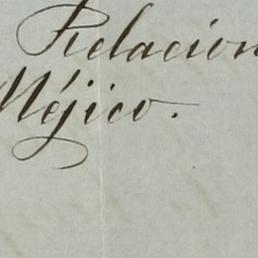 Relacion
Méjico.